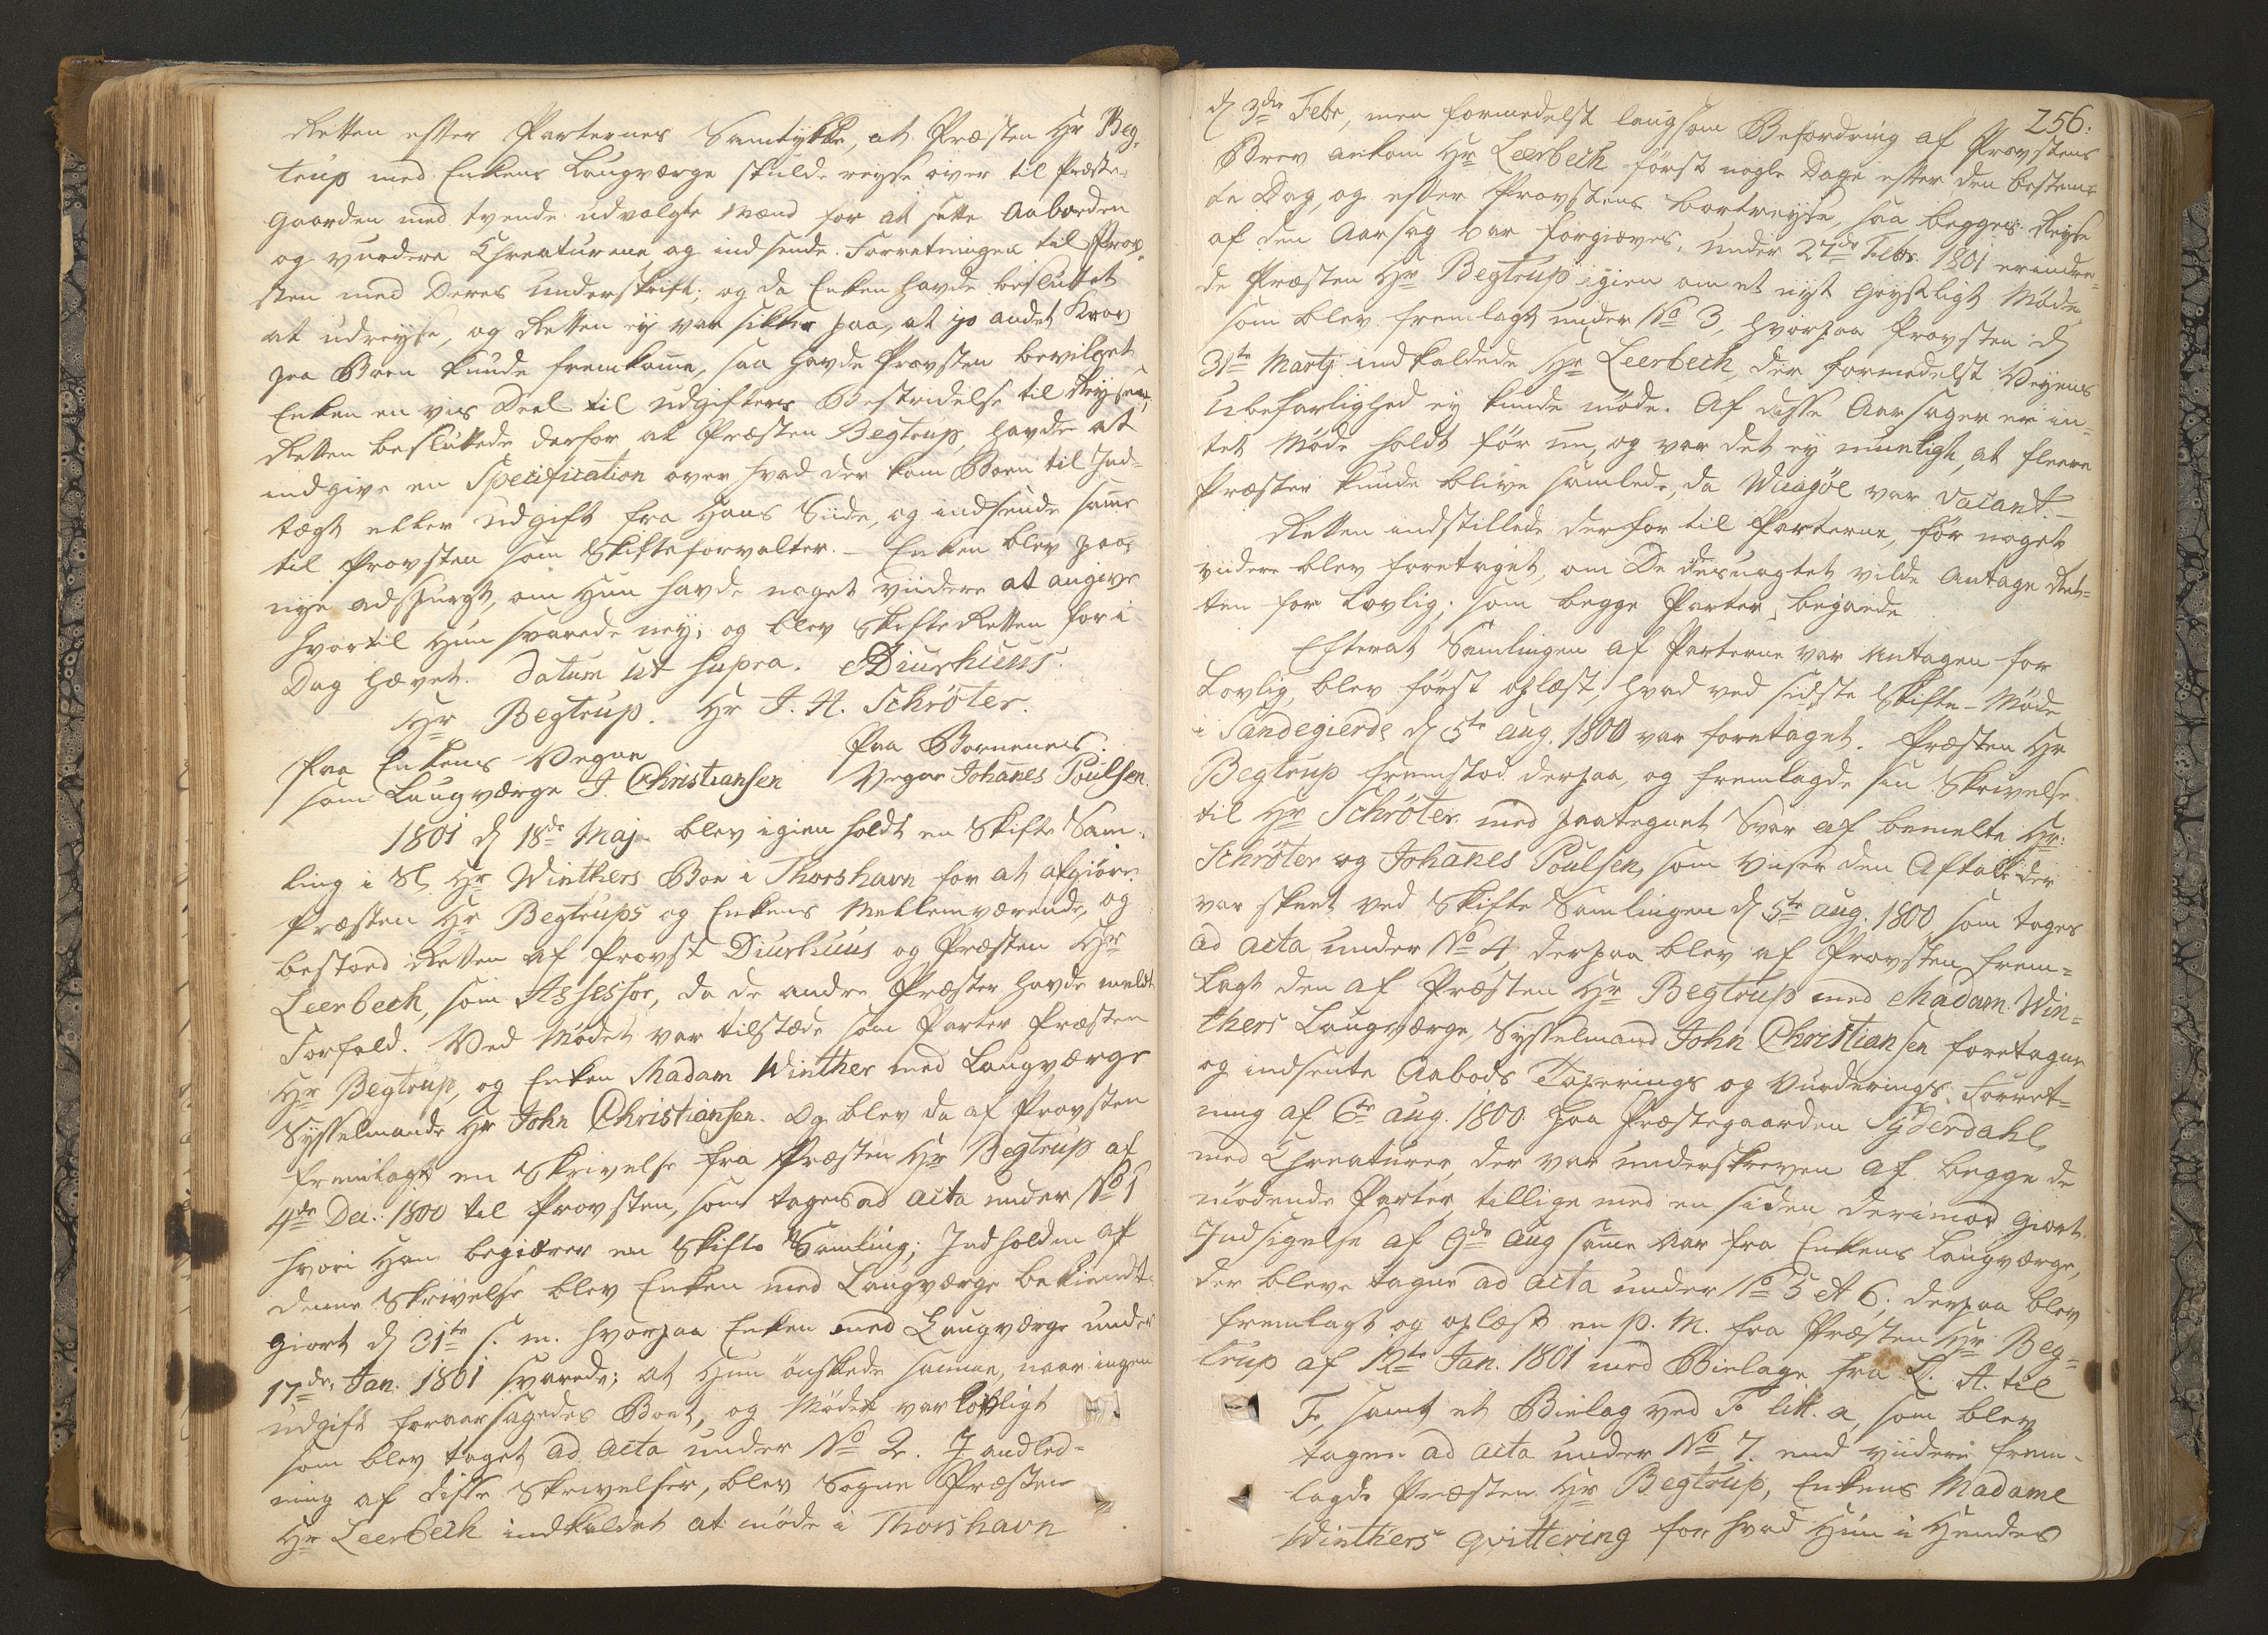 Retten efter Parternes Samtykke, at Præsten Hr Beg-
trup med Enkens Laugværge skulde reyse over til Præste-
Gaarden med tvende udvalgte Mænd for at sette Aaboeden
og vurdere Chreaturene og indsende Forretningen til Prov-
sten med Deres Underskrift; og da Enken havde besluttet
at udreyse, og Retten ej var sikker paa, at jo andet Krav
paa Boen kunde fremkome, saa havde Provsten bevilget
Enken en vis Deel til Udgifters Bestridelse til Reysen,
Retten besluttede derfor at Præsten Begtrup, havde at
indgive en Specification over hvad der kom Boen til Ind-
tægt eller Udgift fra Hans Siide, og indsende same
til Provsten som Skifteforvalter. – Enken blev paa
nye adspurgt, om Hun havde noget viidere at angive
hvortil Hun svarede ney; og blev Skifte Retten for i
Dag hævet. Datum ut supra. Diurhuus.
Hr Begtrup. Hr J. H. Schröter.
Paa Enkens Vegne Paa Bornenes
som Laugværge J. Christiansen Vegne Johanes Poulsen.
1801 d 18de Maj blev igien holdt en Skifte Sam-
ling i Sl. Hr Winthers Boe i Thorshavn for at afgiøre
Præsten Hr Begtrups og Enkens Mellemværende, og
bestoed Retten af Provst Diurhuus og Præsten Hr
Leerbech, som Assessor, da de andre Præster havde meldt
Forfald. Ved Mødet var tilstæde som Parter Præsten
Hr Begtrup, og Enken Madam Winther med Laugværge
Sysselmand Hr John Christiansen. Og blev da af Provsten
fremlagt en Skrivelse fra Præsten Hr Begtrup af
4de Dec. 1800 til Provsten, som tages ad acta under No 1
hvori Han begiærer en Skifte Samling; Indholden af
denne Skrivelse blev Enken med Laugværge bekiendt-
giort d 31te s. m. hvorpaa Enken med Laugværge under
17de Jan. 1801 svarede; at Hun ønskede samme, naar ingen
udgift foraarsagedes Boet, og Mødet var lovligt
som blev taget ad acta under No 2. I andled-
ning af disse Skrivelser, blev Sogne Præsten
Hr Leerbech indkaldet at møde i Thorshavn
256.
d 3die Febr, men formedelst langsom Befordring af Provstens
Brev ankom Hr Leerbech først nogle Dage efter den bestem-
te Dag, og efter Provstens bortreyse, saa begges Reyse
af den Aarsag var forgiæves. Under 27de Febr. 1801 erindre-
de Præsten Hr Begtrup igien om et nyt Geystligt Møde,
som blev fremlagt under No 3, hvorpaa Provsten d
31te Martj indkaldede Hr Leerbech, der formedelst Veyens
Ubefarlighed ej kunde møde. Af disse Aarsager er in-
tet Møde holdt før nu, og var det ej mueligt, at fleere
Præster kunde blive samlede, da Waagöe var vacant. –
Retten indstillede derfor til Parterne, før noget
viidere blev foretaget, om De desuagtet vilde antage Ret-
ten for Lovlig; som begge Parter begiærede
Efterat Samlingen af Parterne var antagen for
Lovlig, blev først oplæst, hvad ved sidste Skifte-Møde
i Sandegierde d 5te Aug. 1800 var foretaget. Præsten Hr
Begtrup fremstod derpaa, og fremlagde sin Skrivelse
til Hr Schröter med paategnet Svar af bemelte Hr:
Schröter og Johanes Poulsen, som viser den Aftale der
var skeet ved Skifte Samlingen d 5te Aug. 1800 som tages
ad acta under No 4. derpaa blev af Provsten frem-
lagt den af Præsten Hr Begtrup med Madam Win-
thers Laugværge Sysselmand John Christiansen foretagne
og indsente Aabods Taxerings og Vurderings Forret-
ning af 6te Aug. 1800 paa Præstegaarden Syderdahl
med Chreaturer, der var underskreven af begge de
mødende Parter tillige med en siden derimod giort
Indsigelse af 9de Aug same Aar fra Enkens Laugværge,
der bleve tagne ad acta under No 5 et 6; derpaa blev
fremlagt og oplæst en p. M. fra Præsten Hr Beg-
trup af 12te Jan. 1801 med Bielage fra L. A. til
F, samt et Bielag ved F litt. a, som blev
tagen ad acta under No 7. end viidere frem-
lagde Præsten Hr Begtrup, Enkens Madame
Winthers qvittering for hvad Hun i Hendes